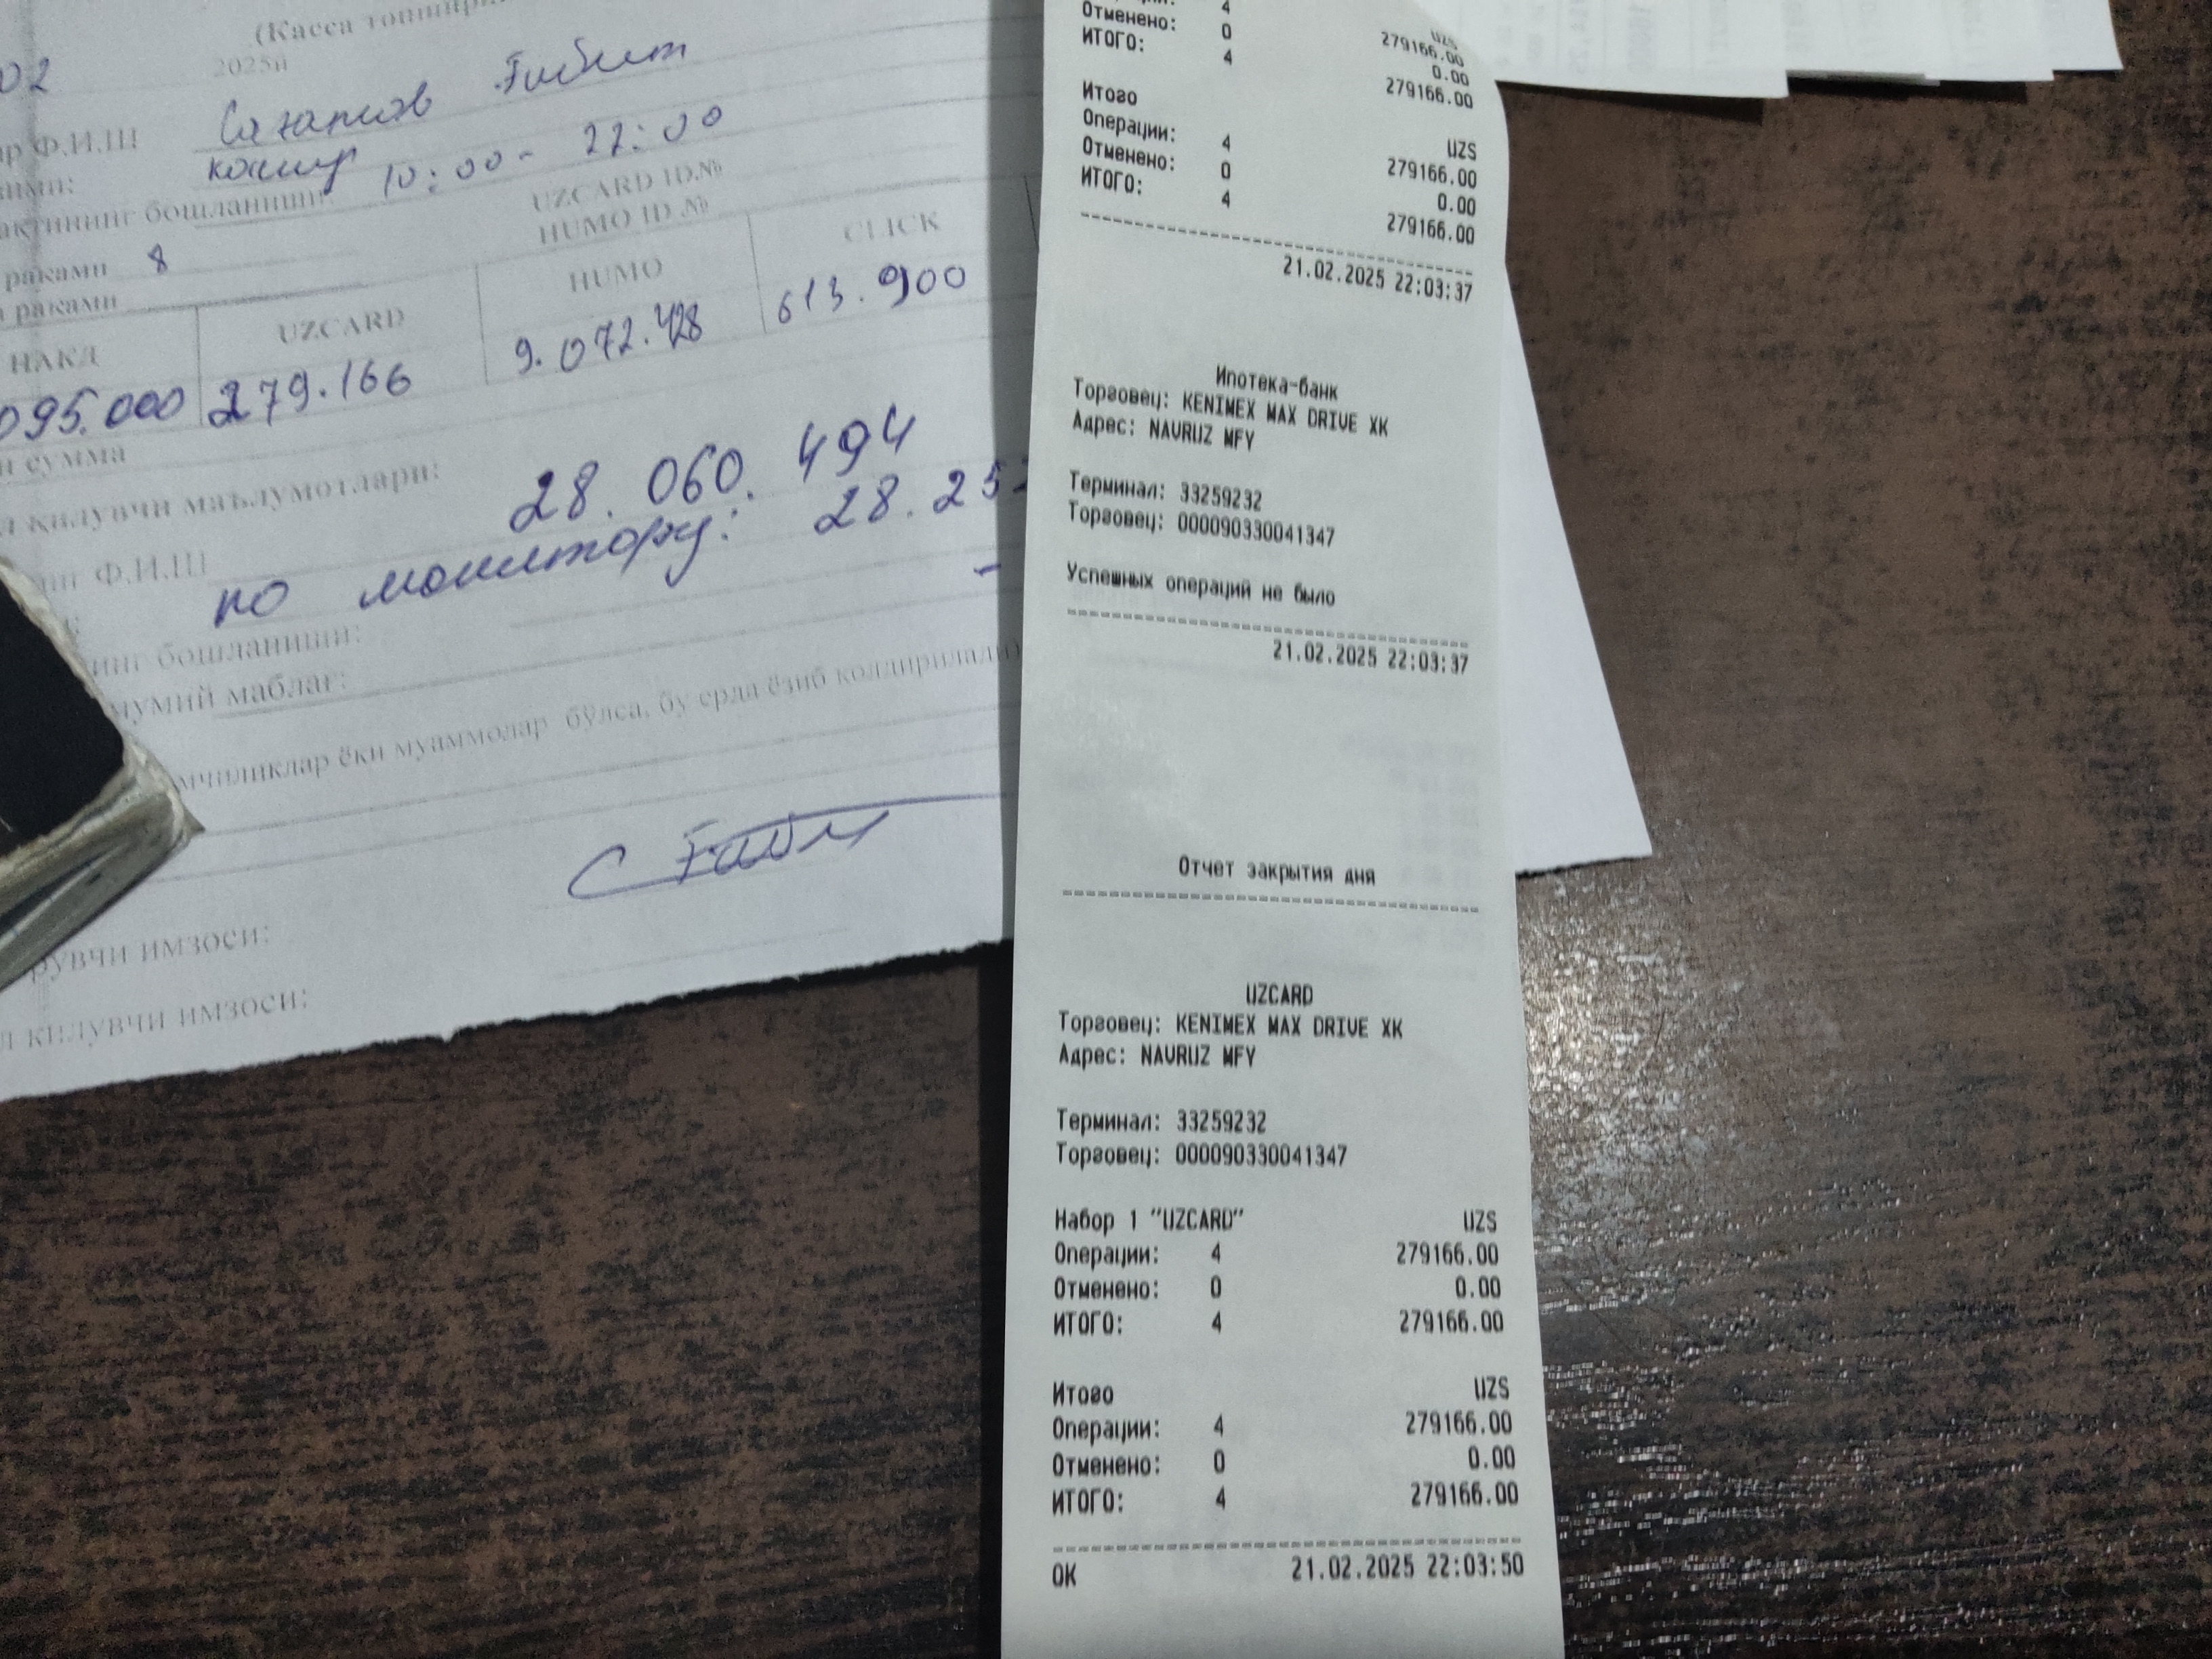 (Касса топшири
2025й
02
р Ф.И.Ш
кассир 10:00 - 22:00
актининг бошланиши:
UZCARD ID.№
HUMO ID .№
раками 8
раками
НАКД UZCARD HUMO CLICK
095.000 279.166 9.072.428 613.900
сумма
қилувчи маълумотлари:
28. 060. 494
Ф.И.Ш
по монитору: 28.25
-
инг бошланиши:
умумий маблағ:
мчиликлар ёки муаммолар бўлса, бу ерда ёзиб колдирилади)
рувчи имзоси:
л килувчи имзоси:
4 UZS
Отменено: 0 279166.00
0.00
ИТОГО: 4 279166.00
Итого UZS
Операции: 4 279166.00
Отменено: 0 0.00
ИТОГО: 4 279166.00
21.02.2025 22:03:37
Ипотека-банк
Торговец: KENIMEX MAX DRIVE XK
Адрес: NAVRUZ MFY
Терминал: 33259232
Торговец: 000090330041347
Успешных операций не было
21.02.2025 22:03:37
Отчет закрытия дня
UZCARD
Торговец: KENIMEX MAX DRIVE XK
Адрес: NAVRUZ MFY
Терминал: 33259232
Торговец: 000090330041347
Набор 1 "UZCARD" UZS
Операции: 4 279166.00
Отменено: 0 0.00
ИТОГО: 4 279166.00
Итого UZS
Операции: 4 279166.00
Отменено: 0 0.00
ИТОГО: 4 279166.00
OK 21.02.2025 22:03:50